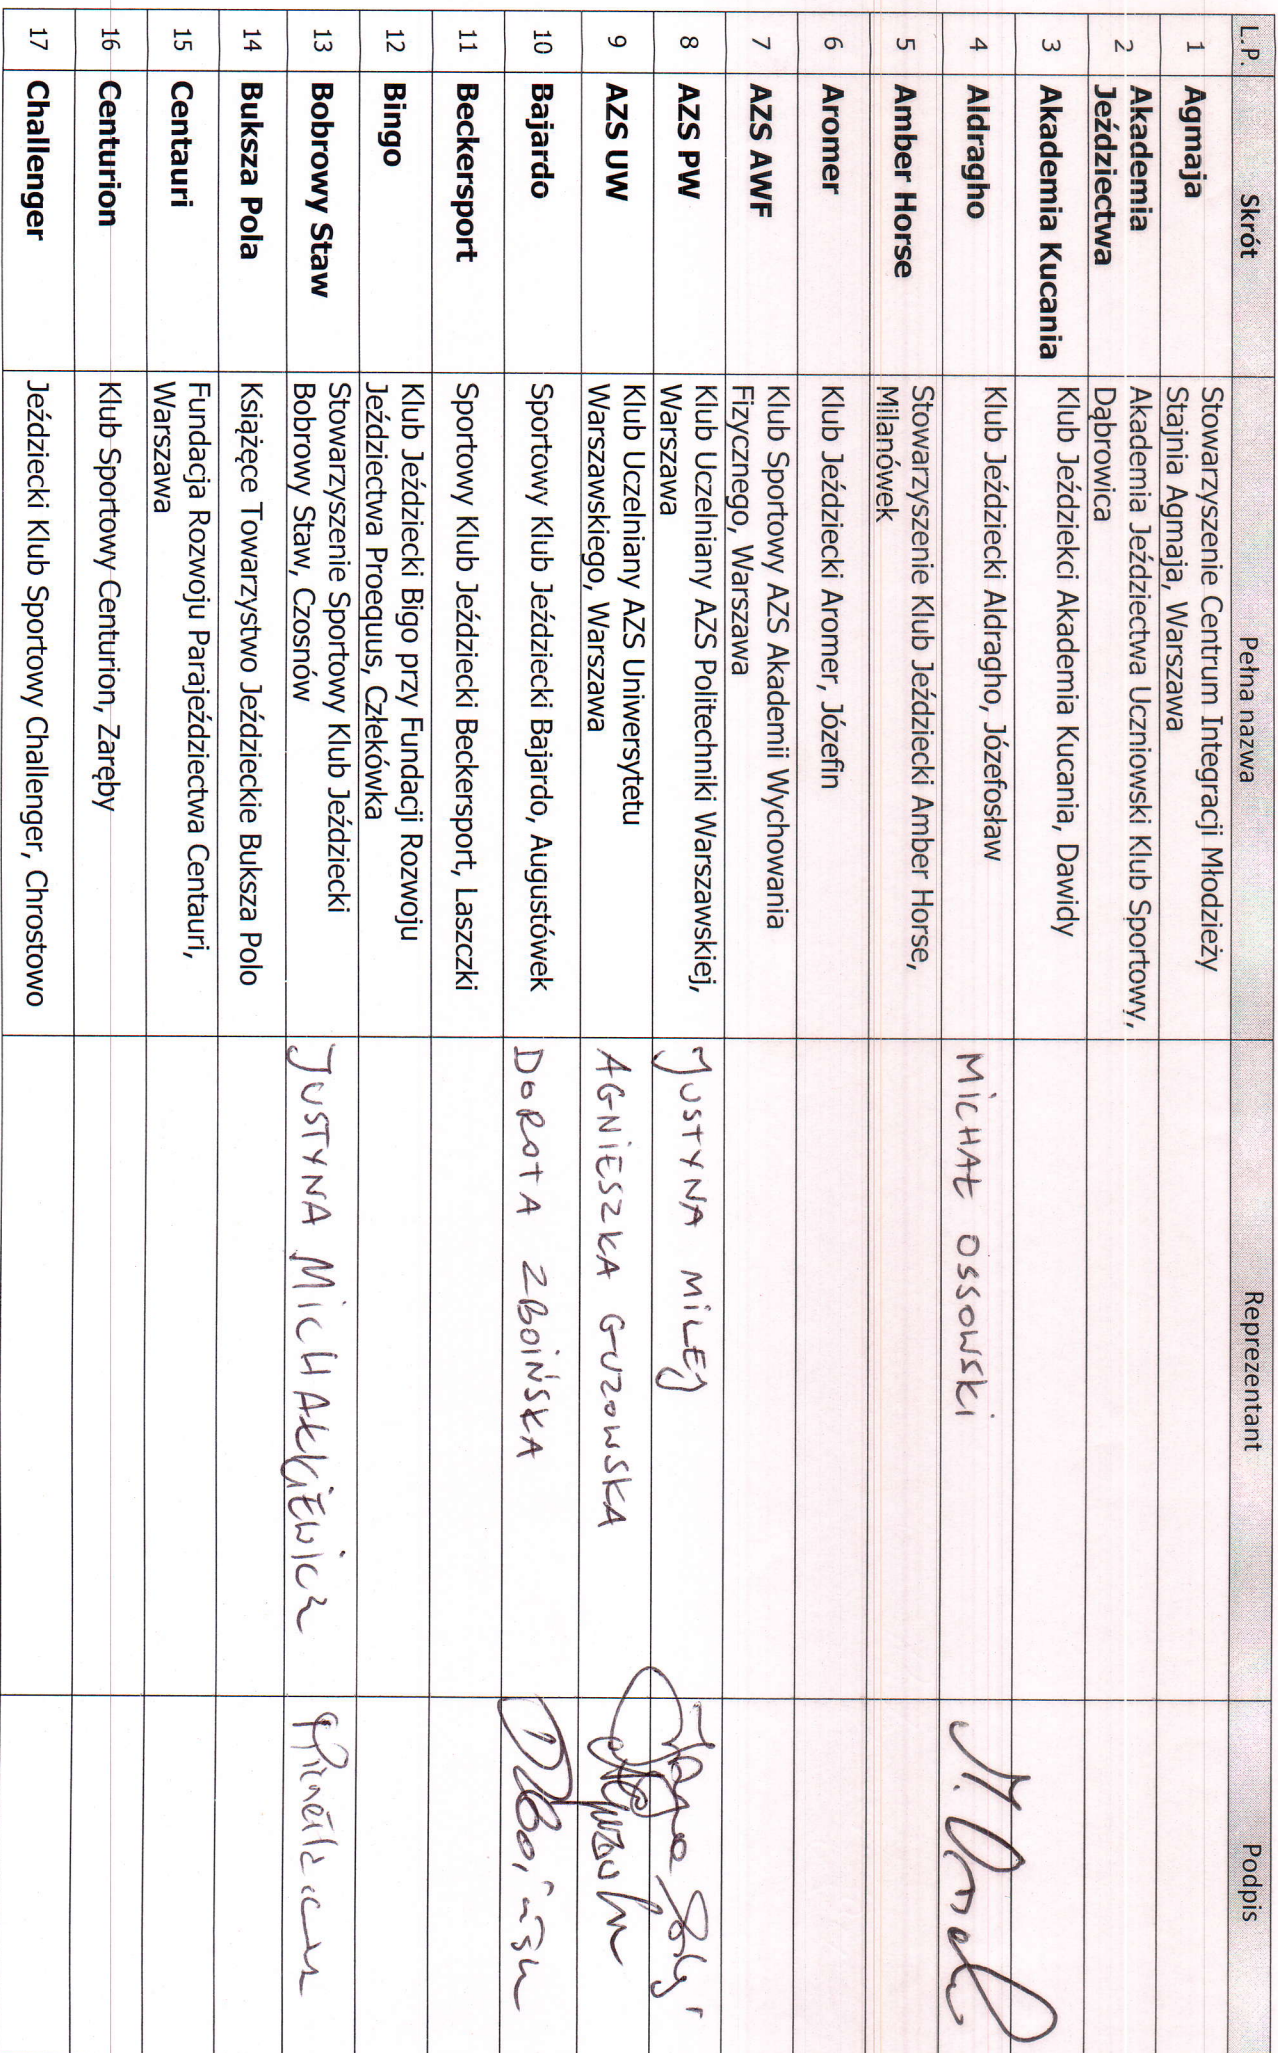 L.P. Skrót Pełna nazwa Reprezentant Podpis
1 Agmaja Stowarzyszenie Centrum Integracji Młodzieży
Stajnia Agmaja, Warszawa
2 Akademia Akademia Jeździectwa Uczniowski Klub Sportowy,
Jeździectwa Dąbrowica
3 Akademia Kucania Klub Jeździekci Akademia Kucania, Dawidy
4 Aldragho Klub Jeździecki Aldragho, Józefosław MICHAŁ OSSOWSKI
5 Amber Horse Stowarzyszenie Klub Jeździecki Amber Horse,
Milanówek
6 Aromer Klub Jeździecki Aromer, Józefin
7 AZS AWF Klub Sportowy AZS Akademii Wychowania
Fizycznego, Warszawa
8 AZS PW Klub Uczelniany AZS Politechniki Warszawskiej, JUSTYNA MILEJ
Warszawa
9 AZS UW Klub Uczelniany AZS Uniwersytetu AGNIESZKA GUZOWSKA
Warszawskiego, Warszawa
10 Bajardo Sportowy Klub Jeździecki Bajardo, Augustówek DOROTA ZBOIŃSKA
11 Beckersport Sportowy Klub Jeździecki Beckersport, Laszczki
12 Bingo Klub Jeździecki Bigo przy Fundacji Rozwoju
Jeździectwa Proequus, Człekówka
13 Bobrowy Staw Stowarzyszenie Sportowy Klub Jeździecki JUSTYNA MICHAŁKIEWICZ
Bobrowy Staw, Czosnów
14 Buksza Pola Książęce Towarzystwo Jeździeckie Buksza Polo
15 Centauri Fundacja Rozwoju Parajeździectwa Centauri,
Warszawa
16 Centurion Klub Sportowy Centurion, Zaręby
17 Challenger Jeździecki Klub Sportowy Challenger, Chrostowo